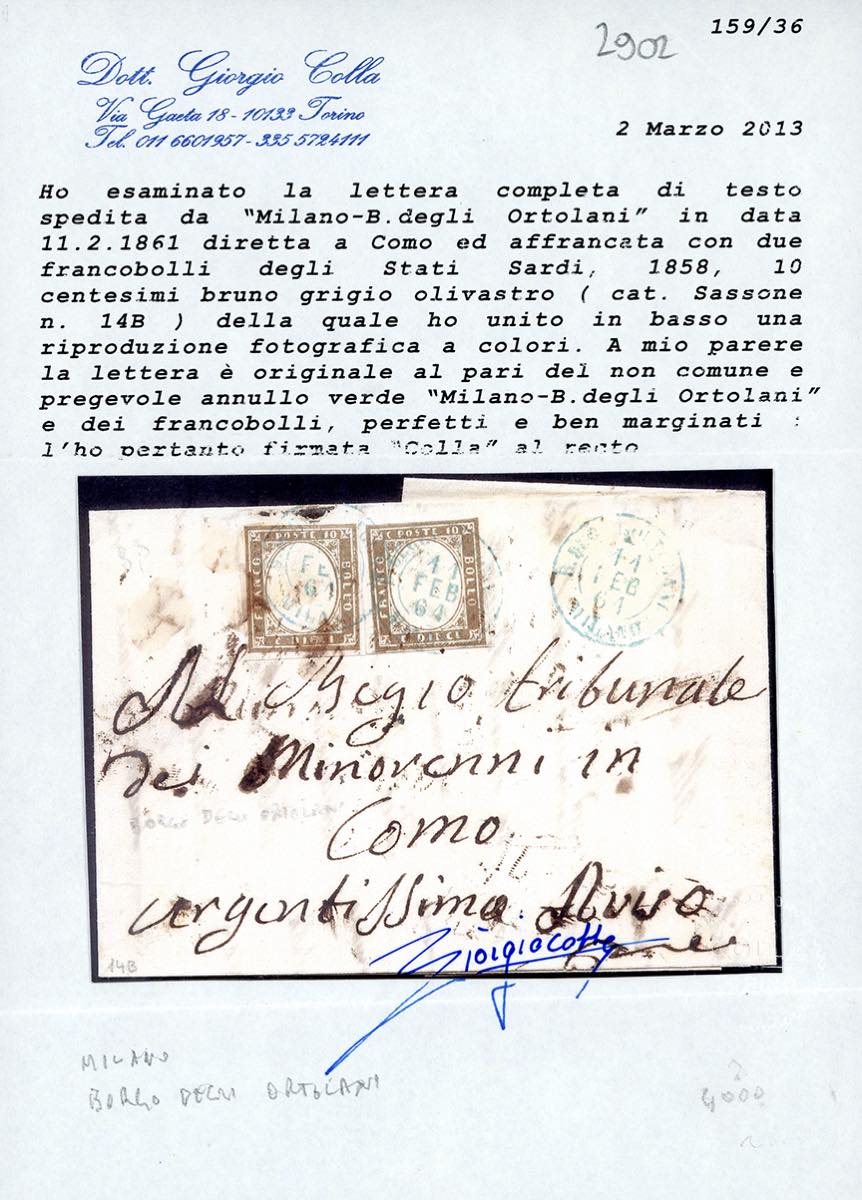 159/36
2902
Dott. Giorgio Colla
Via Gaeta 18 - 10133 Torino
Tel. 011 6601957 - 335 5724111
2 Marzo 2013
Ho esaminato la lettera completa di testo
spedita da "Milano-B.degli Ortolani" in data
11.2.1861 diretta a Como ed affrancata con due
francobolli degli Stati Sardi, 1858, 10
centesimi bruno grigio olivastro ( cat. Sassone
n. 14B ) della quale ho unito in basso una
riproduzione fotografica a colori. A mio parere
la lettera è originale al pari del non comune e
pregevole annullo verde "Milano-B.degli Ortolani"
e dei francobolli, perfetti e ben marginati :
l'ho pertanto firmata "Colla" al recto
C POSTE 10
FRANCO
BOLLO
C DIECI
C POSTE 10
FRANCO
BOLLO
C DIECI
11
FEB
61
11
FEB
61
MILANO
Al Regio tribunale
dei Minorenni in
BORGO DEGLI ORTOLANI
Como
urgentissima
14B
Giorgio Colla
MILANO
BORGO DEGLI ORTOLANI
4000